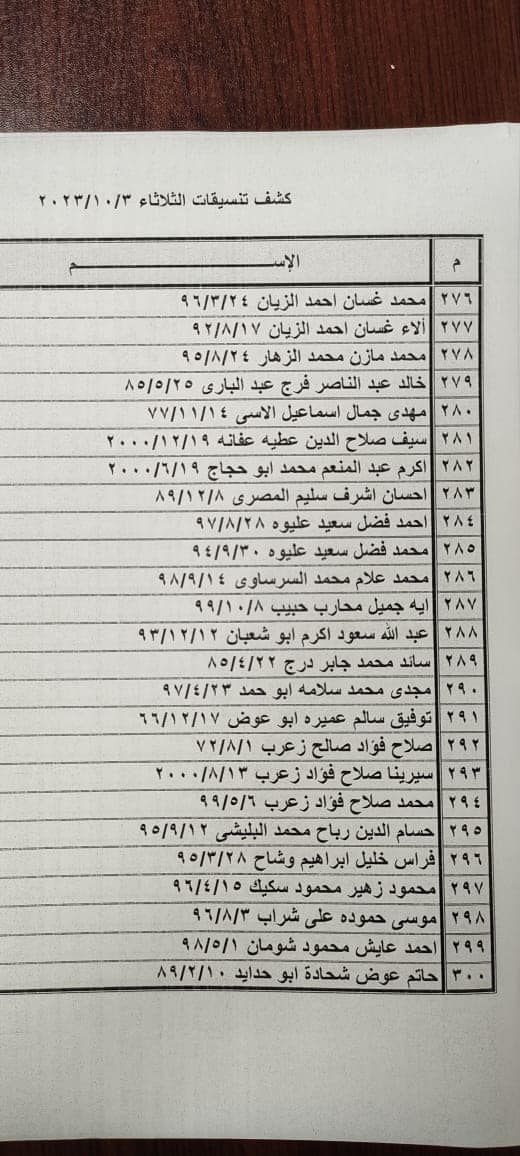 كشف تنسيقات الثلاثاء ٢٠٢٣/١٠/٣
م الإســـــــــــــــم
٢٧٦ محمد غسان احمد الزيان ٩٦/٣/٢٤
٢٧٧ ألاء غسان احمد الزيان ٩٢/٨/١٧
٢٧٨ محمد مازن محمد الزهار ٩٥/٨/٢٤
٢٧٩ خالد عبد الناصر فرج عبد البارى ٨٥/٥/٢٥
٢٨٠ مهدى جمال اسماعيل الاسى ٧٧/١١/١٤
٢٨١ سيف صلاح الدين عطيه عفانه ٢٠٠٠/١٢/١٩
٢٨٢ اكرم عبد المنعم محمد ابو حجاج ٢٠٠٠/٦/١٩
٢٨٣ احسان اشرف سليم المصرى ٨٩/١٢/٨
٢٨٤ احمد فضل سعيد عليوه ٩٧/٨/٢٨
٢٨٥ محمد فضل سعيد عليوه ٩٤/٩/٣٠
٢٨٦ محمد علام محمد السرساوى ٩٨/٩/١٤
٢٨٧ ايه جميل محارب حبيب ٩٩/١٠/٨
٢٨٨ عبد الله سعود اكرم ابو شعبان ٩٣/١٢/١٢
٢٨٩ سائد محمد جابر درج ٨٥/٤/٢٢
٢٩٠ مجدى محمد سلامه ابو حمد ٩٧/٤/٢٣
٢٩١ توفيق سالم عميره ابو عوض ٦٦/١٢/١٧
٢٩٢ صلاح فؤاد صالح زعرب ٧٢/٨/١
٢٩٣ سيرينا صلاح فؤاد زعرب ٢٠٠٠/٨/١٣
٢٩٤ محمد صلاح فؤاد زعرب ٩٩/٥/٦
٢٩٥ حسام الدين رباح محمد البليشى ٩٥/٩/١٢
٢٩٦ فراس خليل ابراهيم وشاح ٩٥/٣/٢٨
٢٩٧ محمود زهير محمود سكيك ٩٦/٤/١٥
٢٩٨ موسى حموده على شراب ٩٦/٨/٣
٢٩٩ احمد عايش محمود شومان ٩٨/٥/١
٣٠٠ حاتم عوض شحادة ابو حدايد ٨٩/٢/١٠